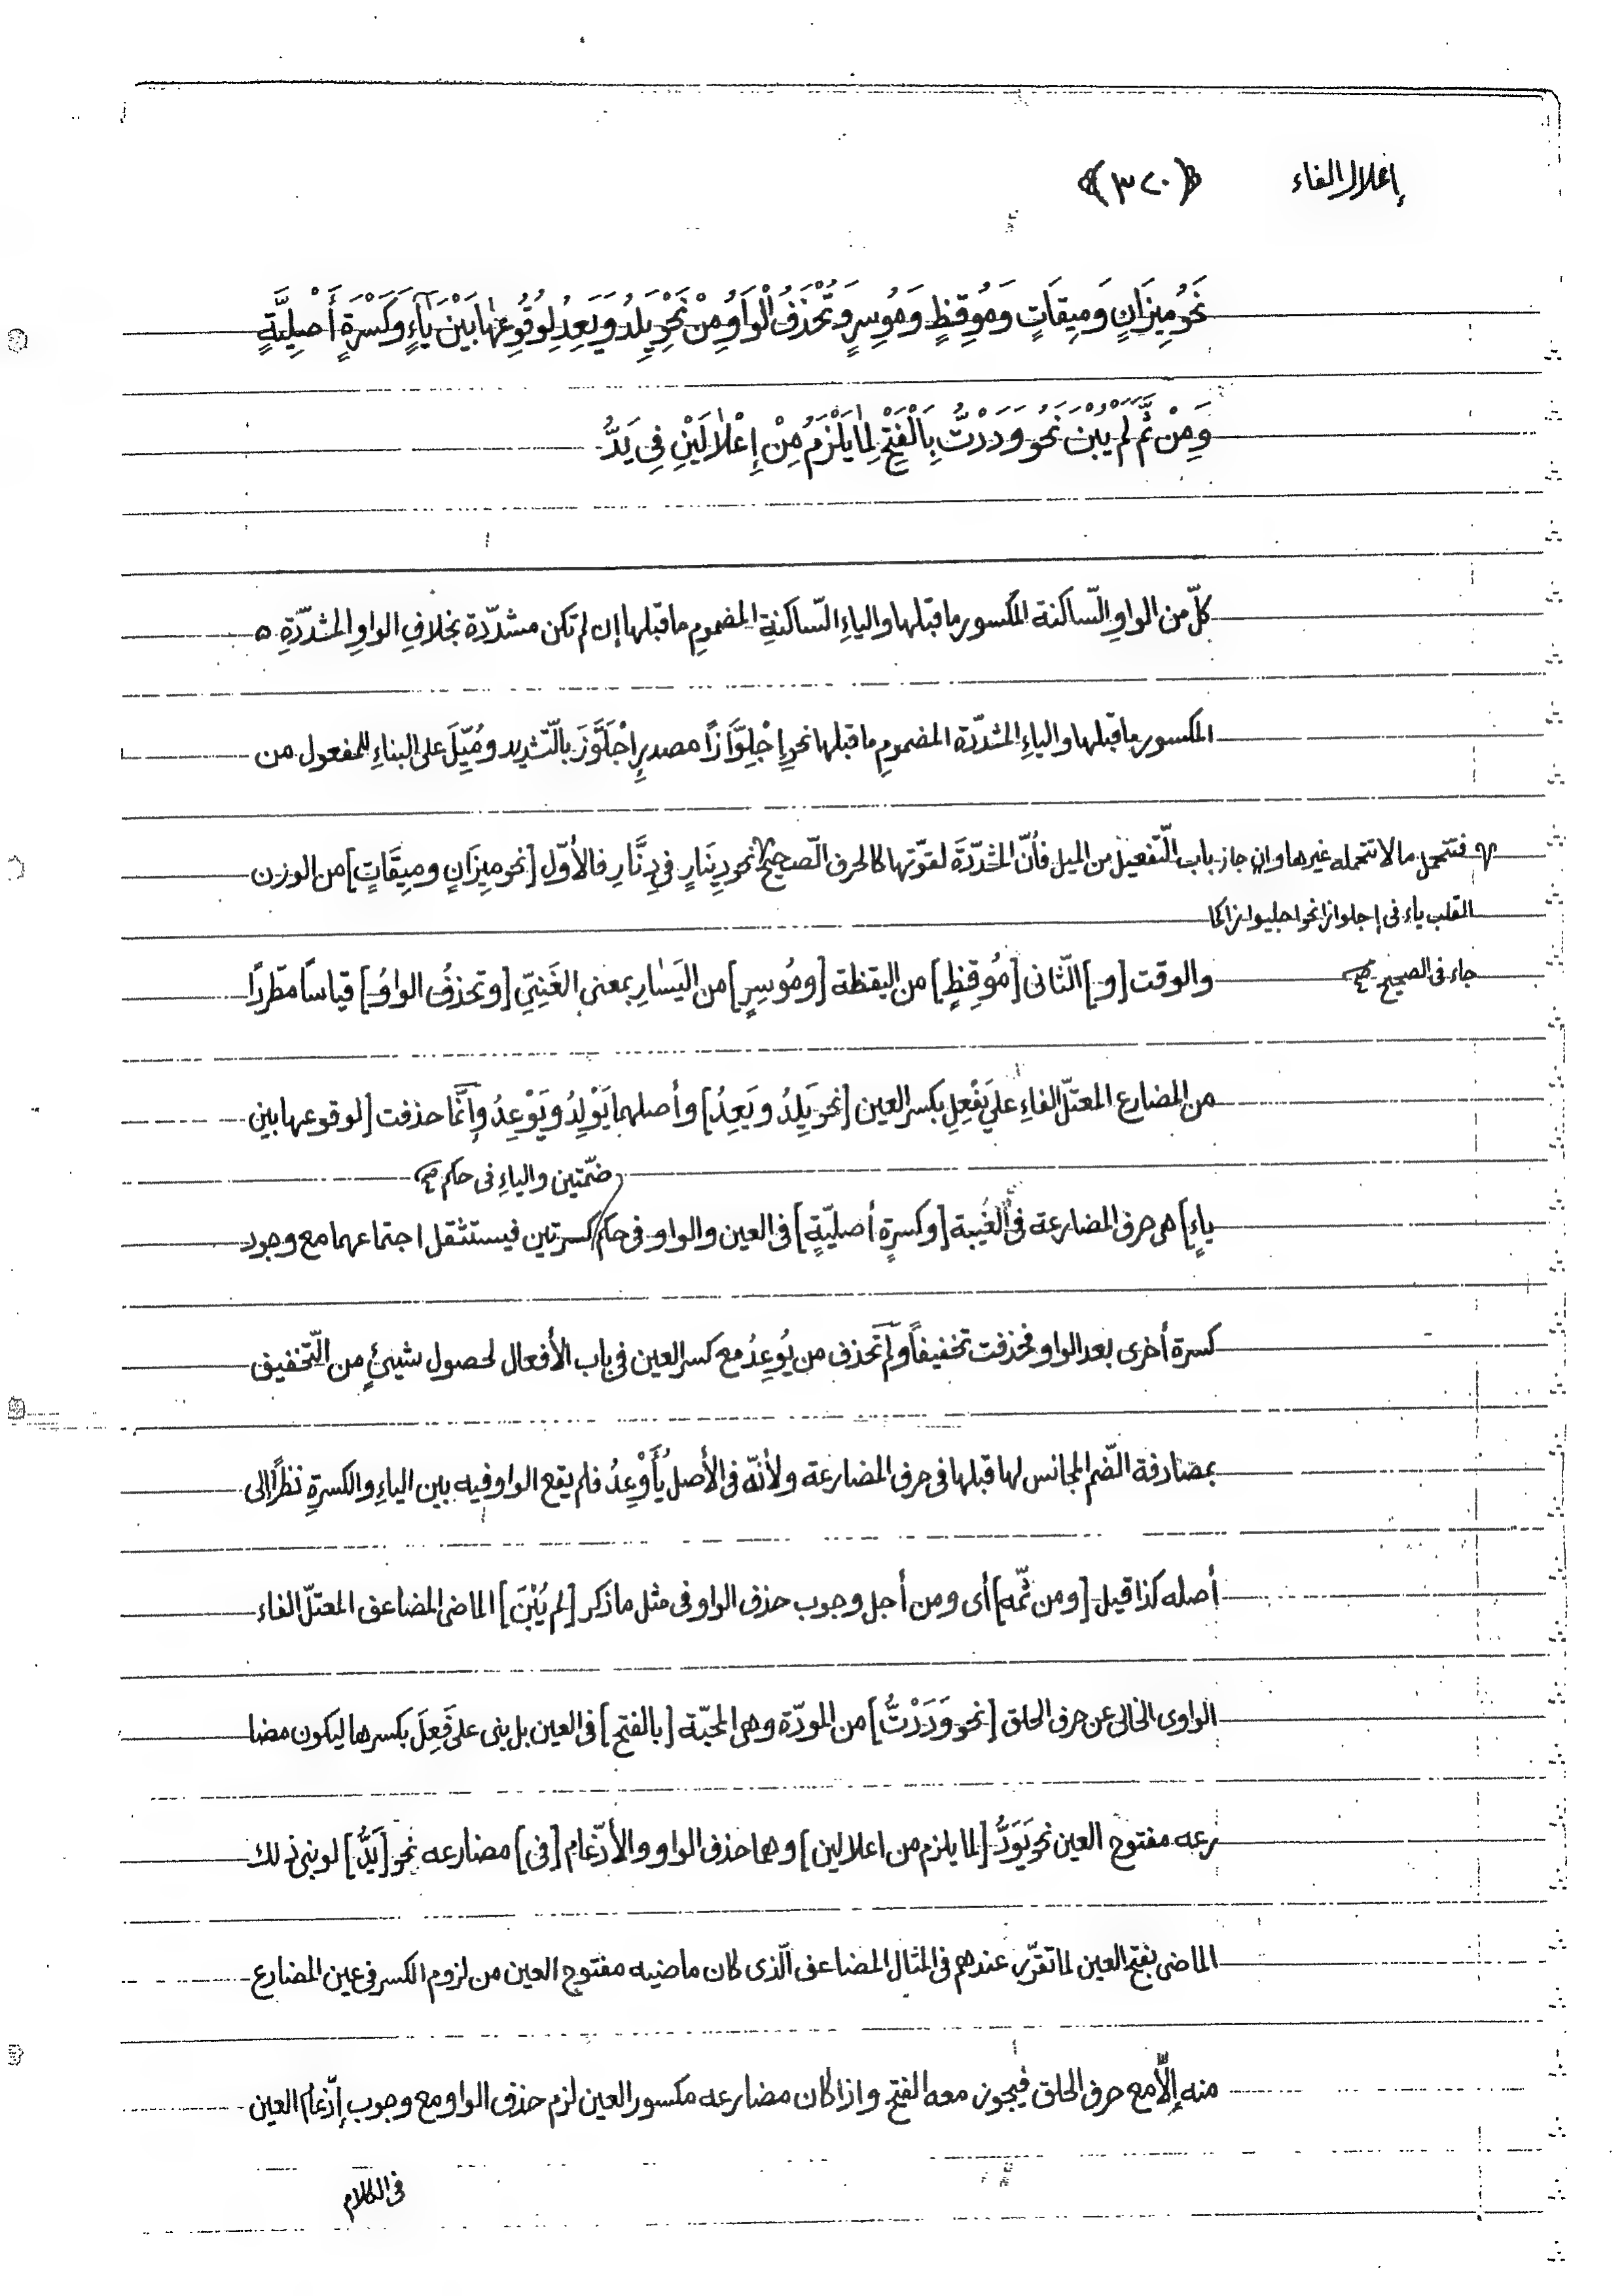 إعلال الفاء ﴿٣٢٠﴾
نَحْوُ مِيزَانٍ وَمِيقَاتٍ وَمُوقِظٍ وَمُوسِرٍ وَتُحْذَفُ الْوَاوُ مِنْ نَحْوِ يَلِدُ وَيَعِدُ لِوُقُوعِهَا بَيْنَ يَاءٍ وَكَسْرَةٍ أَصْلِيَّةٍ
وَمِنْ ثَمَّ لَمْ يُبْنَ نَحْوُ وَدَدْتُ بِالْفَتْحِ لِمَا يَلْزَمُ مِنْ إِعْلَالَيْنِ فِي يَدُّ
كلّ من الواوِ السّاكنة المكسور ما قبلها والياءِ السّاكنةِ المضمومِ ما قبلها إن لم تكن مشدّدة بخلافِ الواوِ المشدّدةِ
المكسور ما قبلها والياءِ المشدّدة المضمومِ ما قبلها نحو إِجْلِوَّازًا مصدرِ إِجْلَوَّزَ بالتّشديد ومُيِّلَ على البناءِ للمفعول من
باب التّفعيل من الميل فأنّ المشدّدَةَ لقوّتها كالحرف الصّحيح نحو دِينَارٍ في دِنَّارٍ فالأوّل [نحو مِيزَانٍ ومِيقَاتٍ] من الوزن
فتتحمل ما لا تتحمله غيرها وان جاز
القلب ياء فى إجلوازا نحو اجليوازا كما
جاء فى الصحيح صح
والوقت [و] الثّانى [مُوقِظٍ] من اليقظة [ومُوسِرٍ] من اليَسارِ بمعنى الغَنِيّ [وتحذفُ الواوُ] قياسًا مطّردًا
من المضارع المعتلّ الفاءِ على يَفْعِلِ بكسر العين [نحو يَلِدُ ويَعِدُ] وأصلهما يَوْلِدُ ويَوْعِدُ وإنّما حذفت [لوقوعها بين
ضمّتين والياءِ فى حكم صح
ياءٍ] هى حرف المضارعة فى الغَيبة [وكسرةٍ أصليّةٍ] فى العين والواو فى حكم كسرتين فيستثقل اجتماعهما مع وجود
كسرة أخرى بعد الواو فحذفت تخفيفًا ولم تحذف من يُوعِدُ مع كسر العين فى باب الأفعال لحصول شيئٍ من التّخفيف
بمصادفة الضّم المجانس لها قبلها فى حرف المضارعة ولأنّه فى الأصل يُأَوْعِدُ فلم يقع الواو فيه بين الياءِ والكسرةِ نظرًا إلى
أصله كذا قيل [ومن ثمّه] أى ومن أجل وجوب حذف الواو فى مثل ما ذكر [لم يُبْنَ] الماضى المضاعف المعتلّ الفاء
الواوى الخالى عن حرف الحلق [نحو وَدَدْتُ] من المودّة وهى المحبّة [بالفتح] فى العين بل بنى على فَعِلَ بكسرها ليكون مضا
رعه مفتوح العين نحو يَوَدُّ [لما يلزم من اعلالين] وهما حذف الواو والأدّغام [فى] مضارعه نحو [يَدُّ] لو بنى ذلك
الماضى بفتح العين لما تقرّر عندهم فى المثال المضاعف الّذى كان ماضيه مفتوح العين من لزوم الكسر فى عين المضارع
منه إلّا مع حرف الحلق فيجوز معه الفتح واذا كان مضارعه مكسور العين لزم حذف الواو مع وجوب إدّغام العين
فى اللام